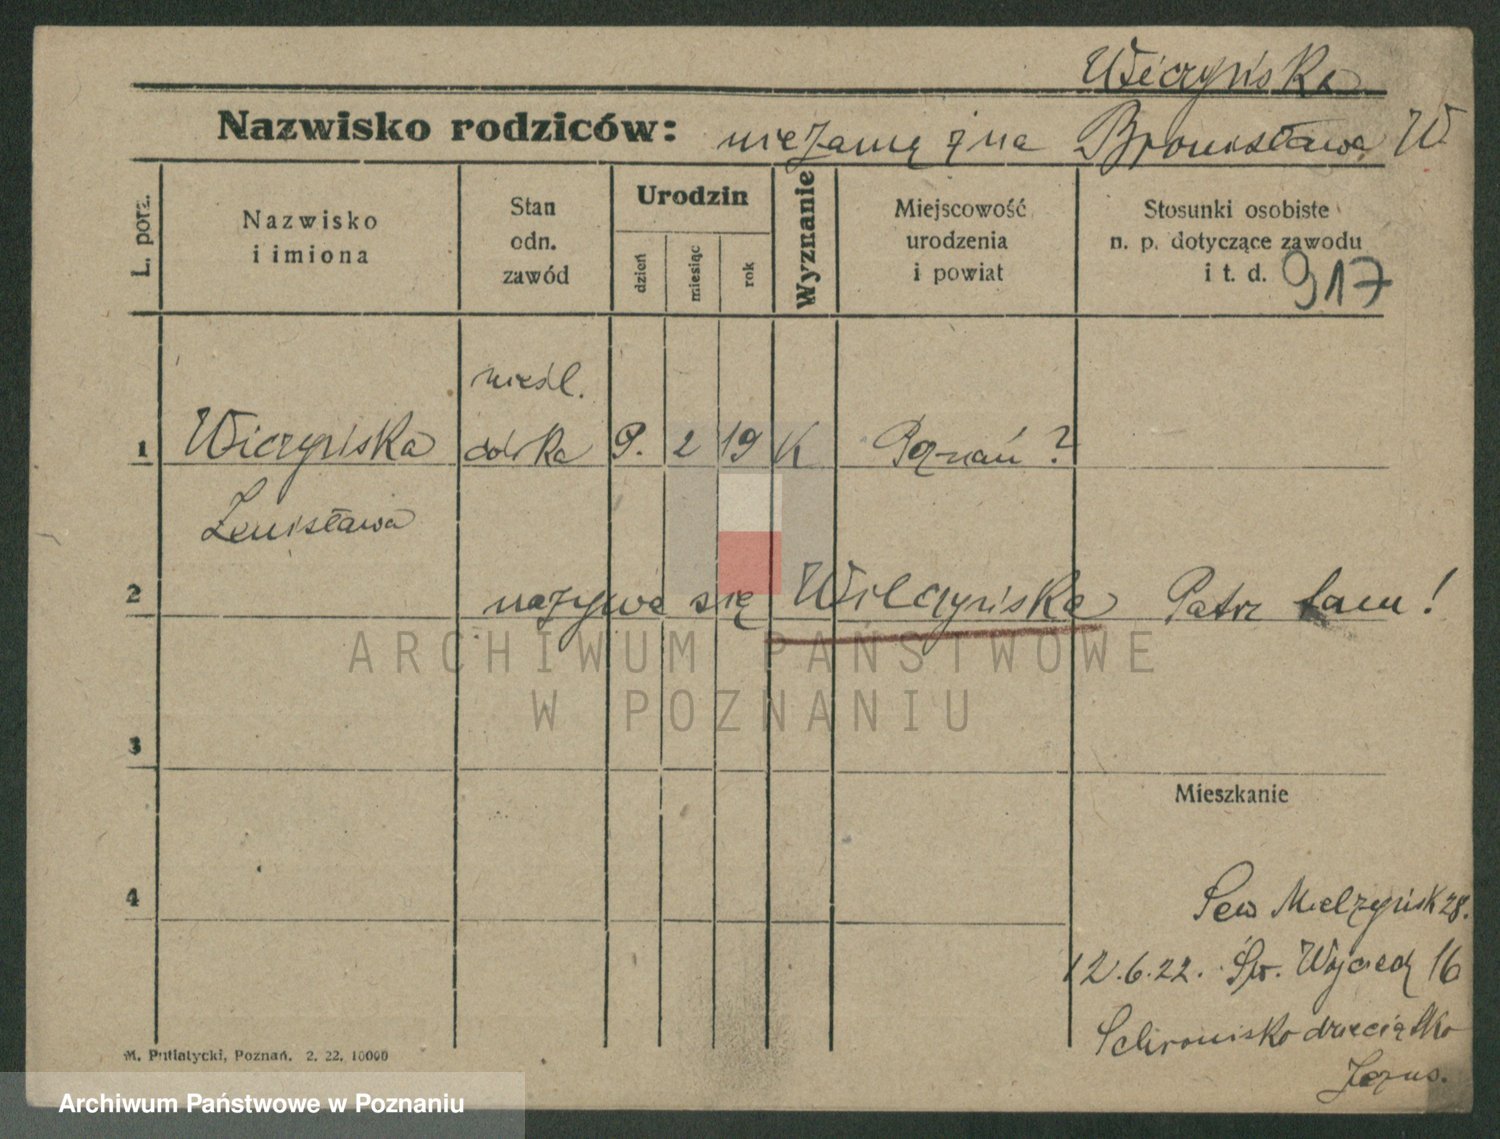 Wiczyńska
Nazwisko rodziców: niezamężna Bronisława W
L. porz.
Nazwisko
i imiona
Stan
odn.
zawód
Urodzin
dzień
miesiąc
rok
Wyznanie
Miejscowość
urodzenia
i powiat
Stosunki osobiste
n. p. dotyczące zawodu
i t. d. 917
nieśl.
1 Wiczyńska córka 9. 2 19 K Poznań ?
Zenisława
2 nazywa się Wilczyńska Patrz tam!
3
Mieszkanie
4
Sew Mielzyńsk 28.
12.6.22. Św. Wojciech 16
Schronisko dzieciątko
Jezus.
M. Putiatycki, Poznań. 2. 22. 10000
ARCHIWUM PAŃSTWOWE
W POZNANIU
Archiwum Państwowe w Poznaniu